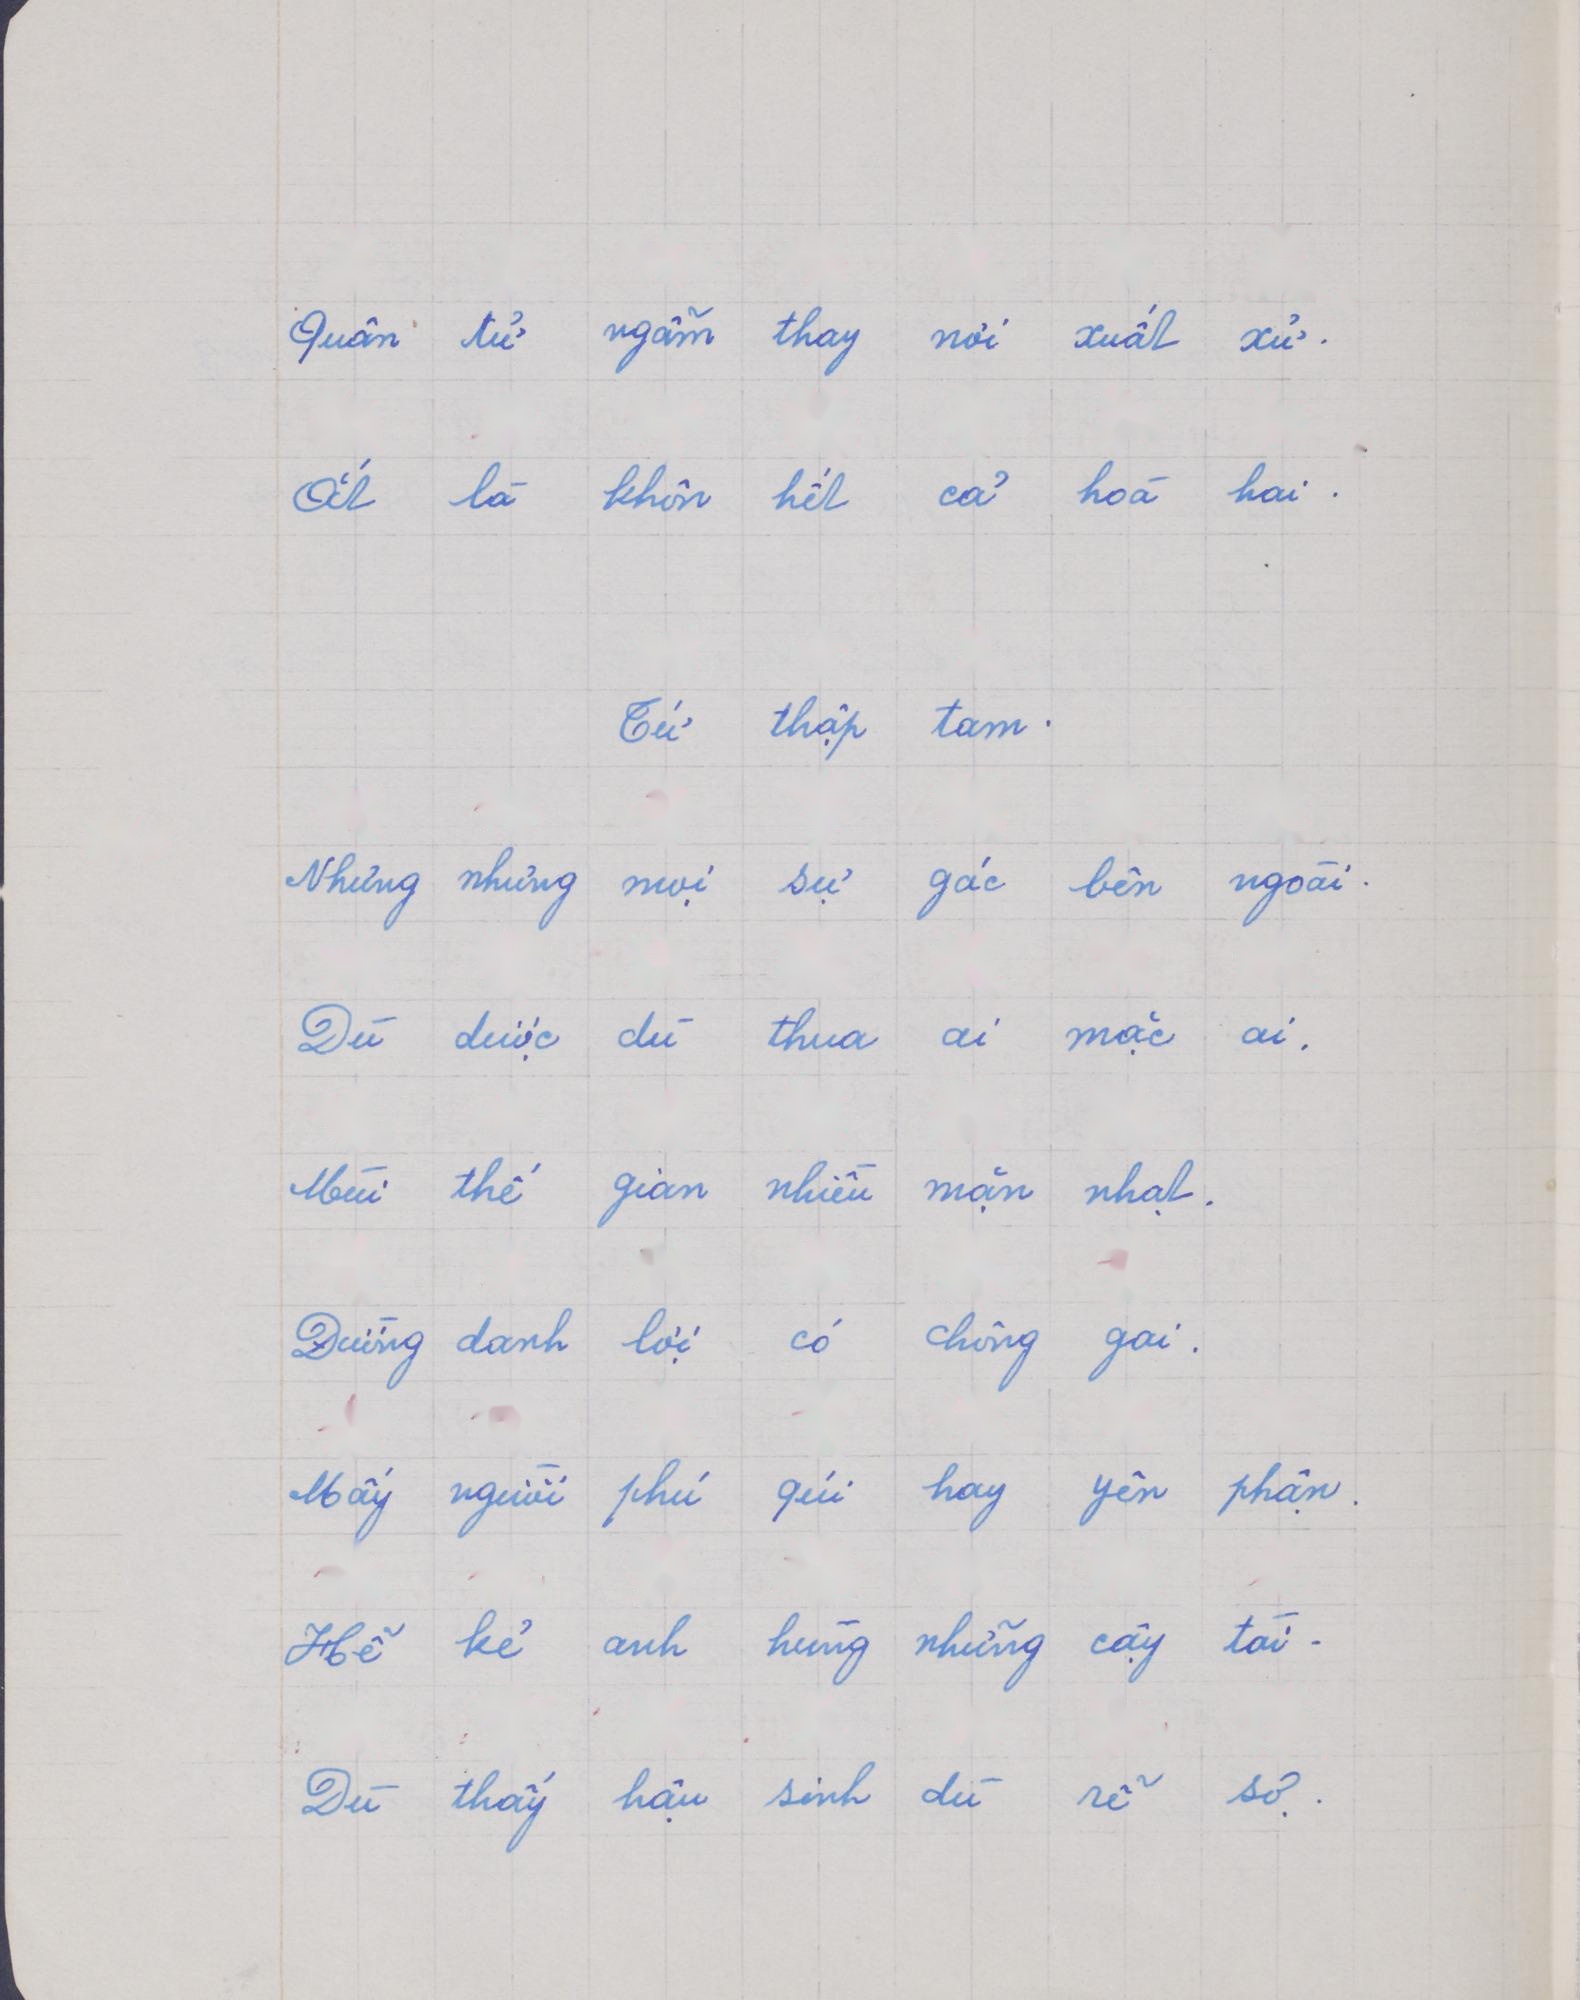 Quân tử ngẫm thay nơi xuất xử.
Ắt là khôn hết cả hoà hai.
Tứ thập tam.
Nhưng nhưng mọi sự gác bên ngoài.
Dù được dù thua ai mặc ai.
Mùi thế gian nhiều mặn nhạt.
Đường danh lợi có chông gai.
Mấy người phú qúi hay yên phận.
Hễ kẻ anh hùng những cậy tài.
Dù thấy hậu sinh dù rễ sợ.